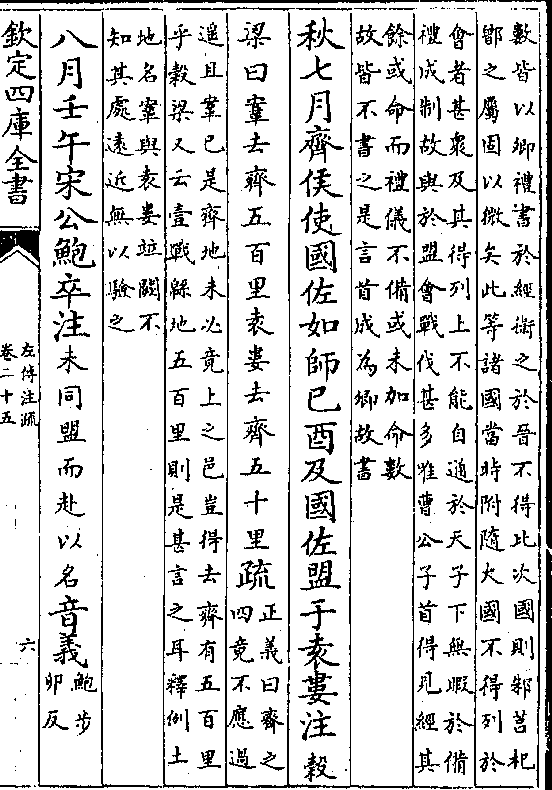 數皆以卿禮書於經衛之於晉不得此次國則邾莒杞
鄫之屬固以微矣此等諸國當時附隨大國不得列於
會者甚衆及其得列上不能自通於天子下無暇於備
禮成制故與於盟會戰伐甚多唯曹公子首得見經其
餘或命而禮儀不備或未加命數
故皆不書之是言首成為卿故書
秋七月齊侯使國佐如師已酉及國佐盟于袁婁注穀
梁曰鞌去齊五百里袁婁去齊五十里疏正義曰齊之
四竟不應過
遥且鞌已是齊地未必竟上之邑豈得去齊有五百里
乎穀梁又云壹戰緜地五百里則是甚言之耳釋例土
地名鞌與袁婁竝闕不
知其處遠近無以驗之
八月壬午宋公鮑卒注未同盟而赴以名音義鮑步
卯反
欽定四庫全書
左傳注疏
卷二十五
六